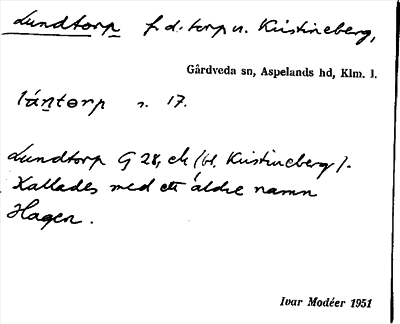 Lundtorp f.d. torp u. Kristineberg,
Gårdveda sn, Aspelands hd, Klm. l.
lántɵrp r. 17.
Lundtorp G 28, ek (bl. Kristineberg).
Kallades med ett äldre namn
Hagen.
Ivar Modéer 1951